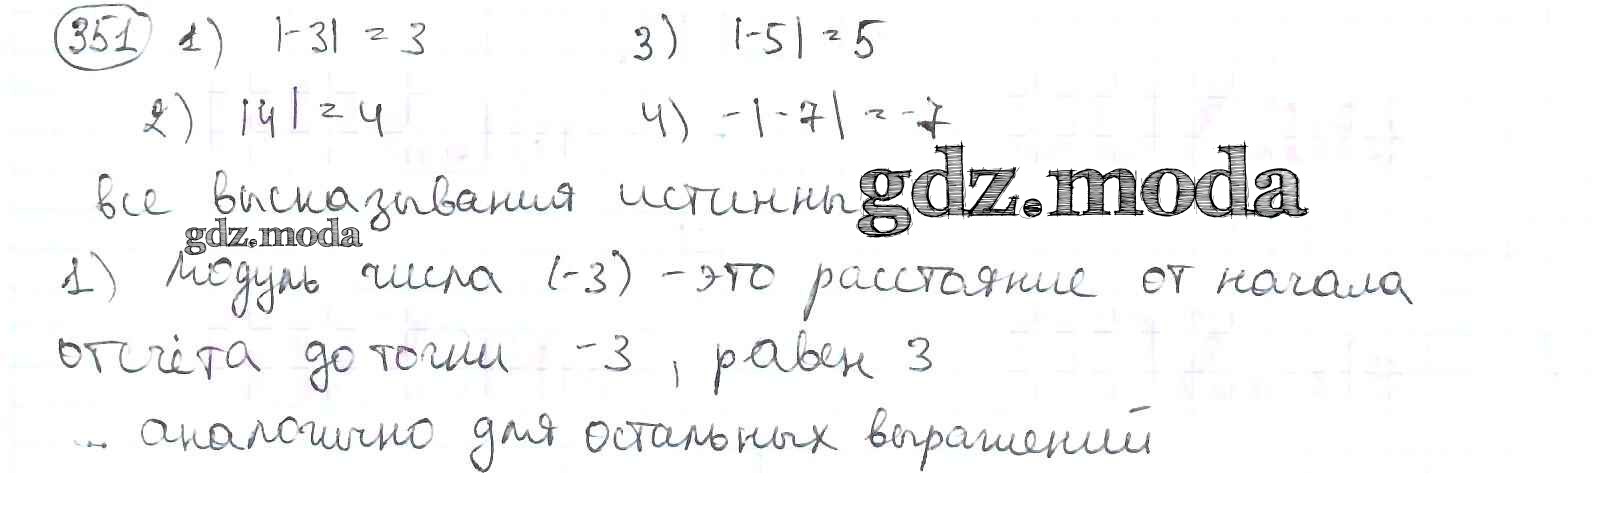 351 1) |-3| = 3 3) |-5| = 5
2) |4| = 4 4) -|-7| = -7
все высказывания истинны gdz.moda
gdz.moda
1) Модуль числа (-3) - это расстояние от начала
отсчёта до точки -3, равен 3
... аналогично для остальных выражений